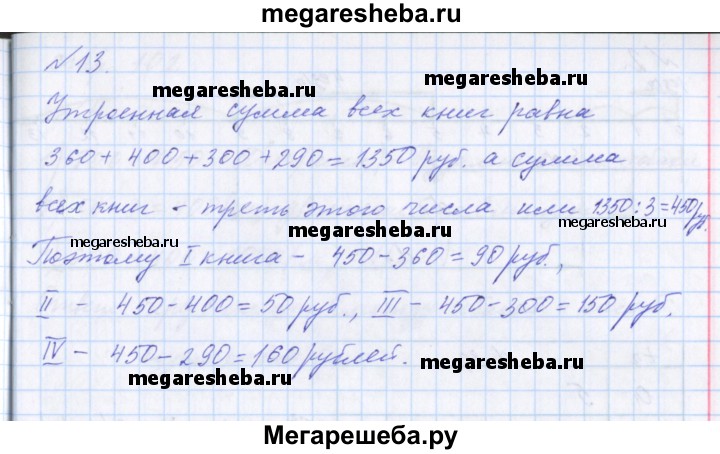 megaresheba.ru
№13.
megaresheba.ru
megaresheba.ru
Утроенная сумма всех книг равна
360+400+300+290=1350 руб. а сумма
всех книг - треть этого числа или 1350:3=450 руб.
megaresheba.ru
megaresheba.ru
megaresheba.ru
Поэтому I книга - 450-360=90 руб.,
II - 450-400=50 руб., III - 450-300=150 руб.
IV - 450-290=160 рублей.
megaresheba.ru
megaresheba.ru
Мегарешеба.ру